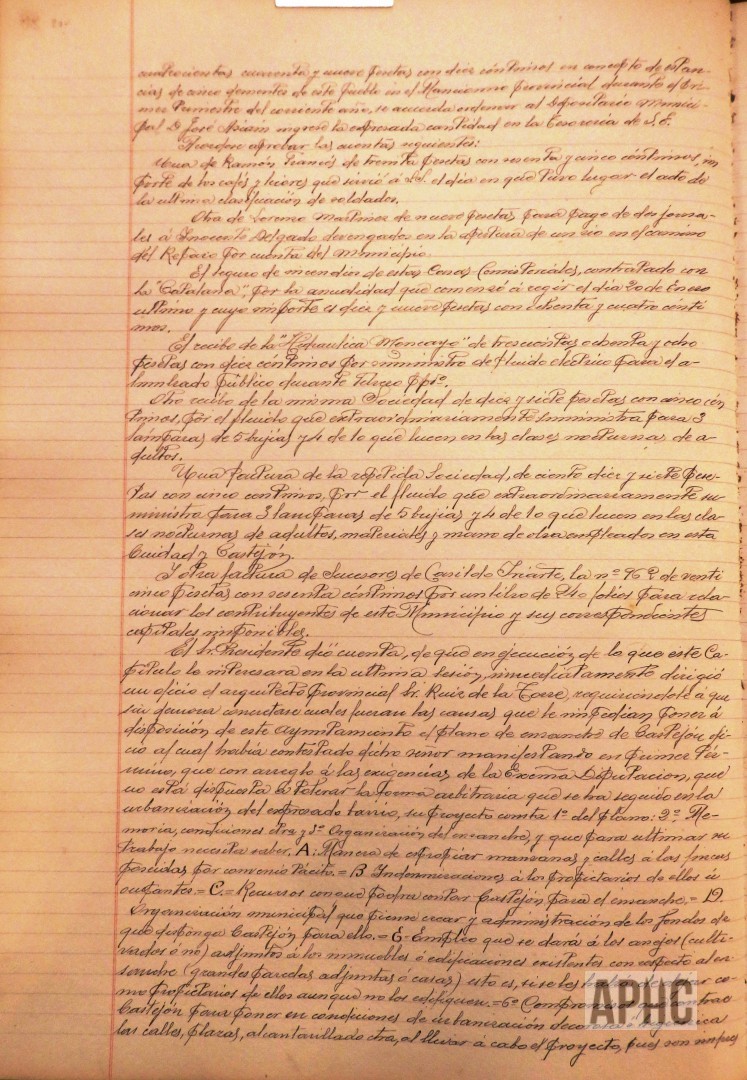 cuatrocientas cuarenta y nueve pesetas con diez céntimos en concepto de estan-
cias de cinco dementes de este pueblo en el Manicomio provincial durante el pri-
mer trimestre del corriente año, se acuerda ordenar al Depositario Munici-
pal D. José ingrese la expresada cantidad en la Tesorería de S.E.
Acordose aprobar las cuentas siguientes:
Una de Ramón Francés de treinta pesetas con sesenta y cinco céntimos, im
porte de los cafés y licores que sirvió á S.S. el día en que tuvo lugar el acto de
la ultima clasificación de soldados.
Otra de Lorenzo Martinez de nueve pesetas para pago de dos jorna-
les á Inocente Delgado devengados en la apertura de un rio en el camino
del Reparo por cuenta del Municipio.
El seguro de incendios de estas Casas Consistoriales, contratado con
la "Catalana", por la anualidad que comenzó á regir el dia 20 de Enero
ultimo y cuyo importe es diez y nueve pesetas con ochenta y cuatro cénti
mos.
El recibo de la "Hidraulica Moncayo" de trescientas ochenta y ocho
pesetas con diez céntimos por suministro de fluido electrico para el a-
lumbrado público durante Febrero ppdo.
Otro recibo de la misma Sociedad de diez y siete pesetas con cinco cén
timos, por el fluido que extraordinariamente suministra para 3
lámparas de 5 bujias y 4 de 10 que lucen en las clases nocturnas de a-
dultos.
Una factura de la repetida Sociedad, de ciento diez y siete pese-
tas con cinco centimos, por el fluido que extraordinariamente su
ministra para 3 lamparas de 5 bujias y 4 de 10 que lucen en las cla-
ses nocturnas de adultos, materiales y mano de obra empleados en esta
Ciudad y Castejón.
Y otra factura de Sucesores de Casildo Iriarte, la nº 962 de venti
cinco pesetas con sesenta céntimos por un libro de 240 folios para rela-
cionar los contribuyentes de este Municipio y sus correspondientes
capitales imponibles.
El Sr. Presidente dió cuenta, de que en ejecución de lo que este Ca-
pitulo le interesara en la ultima sesión, inmediatamente dirigió
un oficio al arquitecto provincial Sr. Ruiz de la Torre, requiriendole á que
sin demora concretase cuales fueran las causas que le impedian poner á
disposición de este Ayuntamiento el plano de ensanche de Castejón, ofi-
cio al cual habia contestado dicho señor manifestando en primer tér-
mino, que con arreglo á las exigencias de la Excma Diputacion, que
no está dispuesta á tolerar la forma arbitraria que se ha seguido en la
urbanización del expresado barrio, su proyecto consta 1º del plano: 2º Me-
moria, condiciones etra y 3º Organización del ensanche, y que para ultimar su
trabajo necesita saber. A: Manera de expropiar manzanas y calles á las fincas
poseidas por convenio pacífico. = B. Indemnizaciones á los propietarios de ellos ú
ocupantes. = C. = Recursos con que podra contar Castejón para el ensanche. = D.
Organización municipal que piense crear y administración de los fondos de
que disponga Castejón para ello. = E - Empleo que se dará á los anejos (culti-
vados ó no) adjuntos á los inmuebles ó edificaciones existentes con respecto al en-
sanche (grandes parcelas adjuntas á casas) esto es, si se les co-
mo propietarios de ellos aunque no los edifiquen. = 6º Compromiso contrae
Castejón para poner en condiciones de urbanización
las calles, plazas, alcantarillado etra, al llevar á cabo el proyecto, pues son
APHC